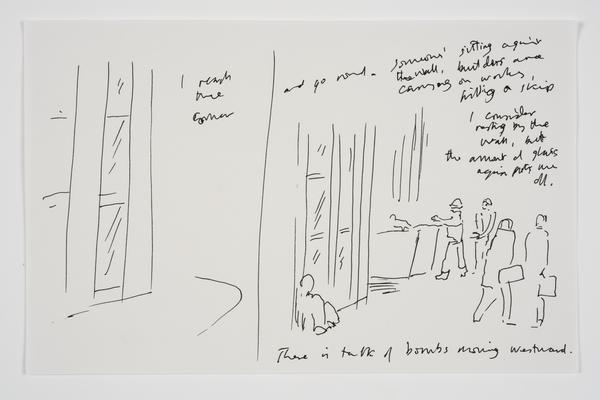 I reach
the
corner
and go round. Someone's sitting against
the wall, builders are
carrying on working,
filling a skip
I consider
resting by the
wall, but
the amount of glass
again puts me
off.
There is talk of bombs moving westward.